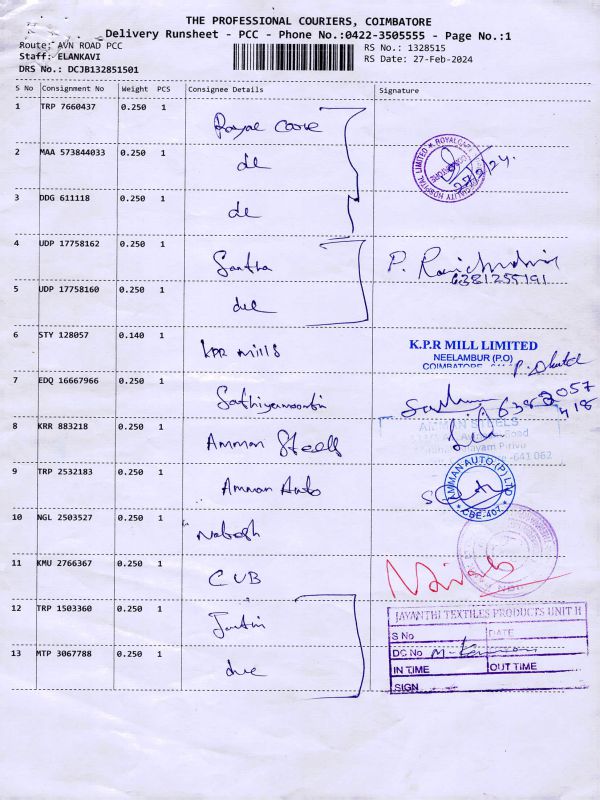 THE PROFESSIONAL COURIERS, COIMBATORE
Delivery Runsheet - PCC - Phone No.:0422-3505555 - Page No.:1
Route: AVN ROAD PCC
RS No.: 1328515
Staff: ELANKAVI
RS Date: 27-Feb-2024
DRS No.: DCJB132851501
S No Consignment No Weight PCS Consignee Details Signature
1 TRP 7660437 0.250 1 Royal Care
2 MAA 573844033 0.250 1
3 DDG 611118 0.250 1
4 UDP 17758162 0.250 1 Santha
5 UDP 17758160 0.250 1
6281255191
6 STY 128057 0.140 1 KPR mills
K.P.R MILL LIMITED
NEELAMBUR (P.O)
COIMBATORE
7 EDQ 16667966 0.250 1 Sathiyamoorthi
8 KRR 883218 0.250 1 Amman Steells
AMMAN STEELS
9 TRP 2532183 0.250 1 Amman Auto
AMMAN AUTO (P) LTD
CBE-407
10 NGL 2503527 0.250 1
11 KMU 2766367 0.250 1 CUB
12 TRP 1503360 0.250 1
JAYANTHI TEXTILES PRODUCTS UNIT II
S No DATE
DC No
IN TIME OUT TIME
SIGN
13 MTP 3067788 0.250 1